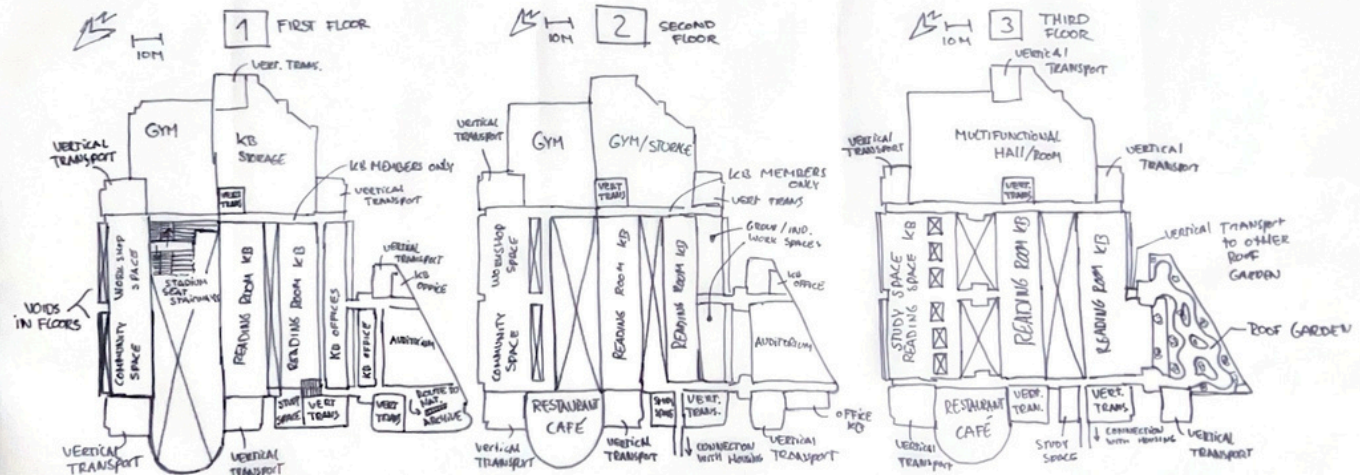 1 FIRST FLOOR
10M
VERT. TRANS.
GYM
KB
STORAGE
VERTICAL
TRANSPORT
KB MEMBERS ONLY
VERT
TRANS
VERTICAL
TRANSPORT
WORKSHOP
SPACE
COMMUNITY
SPACE
STADIUM
SEAT
STAIRWAYS
READING ROOM KB
READING ROOM KB
KB OFFICES
VERTICAL
TRANSPORT
KB
OFFICE
KB OFFICE
AUDITORIUM
VOIDS
IN FLOORS
STUDY
SPACE
VERT
TRANS
VERT
TRANS
ROUTE TO
NAT.
ARCHIVE
VERTICAL
TRANSPORT
VERTICAL
TRANSPORT
2 SECOND
FLOOR
10M
VERTICAL
TRANSPORT
GYM
GYM/STORAGE
VERT
TRANS
KB MEMBERS
ONLY
VERT TRANS
GROUP/IND.
WORK SPACES
WORKSHOP
SPACE
COMMUNITY
SPACE
READING ROOM KB
READING ROOM KB
KB
OFFICE
AUDITORIUM
RESTAURANT
CAFÉ
STUDY
SPACE
VERT.
TRANS.
OFFICE
KB
VERTICAL
TRANSPORT
VERTICAL
TRANSPORT
CONNECTION
WITH HOUSING
VERTICAL
TRANSPORT
3 THIRD
FLOOR
10M
VERTICAL
TRANSPORT
VERTICAL
TRANSPORT
MULTIFUNCTIONAL
HALL/ROOM
VERTICAL
TRANSPORT
VERT.
TRANS
STUDY SPACE
READING SPACE KB
READING ROOM KB
READING ROOM KB
VERTICAL TRANSPORT
TO OTHER
ROOF
GARDEN
ROOF GARDEN
RESTAURANT
CAFÉ
VERT.
TRAN.
VERT.
TRANS
VERTICAL
TRANSPORT
STUDY
SPACE
CONNECTION
WITH HOUSING
VERTICAL
TRANSPORT